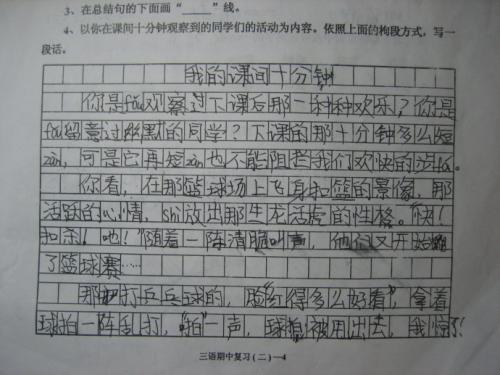 3、在总结句的下面画"____"线。
4、以你在课间十分钟观察到的同学们的活动为内容。依照上面的构段方式，写一
段话。
我的课间十分钟
你是fǒu观察过下课后那一种种欢乐？你是
fǒu留意过的同学？下课的那十分钟多么短
zàn，可是它再短zàn也不能阻拦我们欢快的步fá。
你看，在那篮球场上飞身扣篮的景象，那
活跃的心情，shì放出那生龙活虎的性格。"快！
扣杀！吔！"随着一阵清脆叫声，他们又开始
了篮球赛……
那打乒乓球的，脸"红得多么好看"，拿着
球拍一阵乱打，"啪"一声，球拍被甩出去，我惊了！
三语期中复习(二)—4